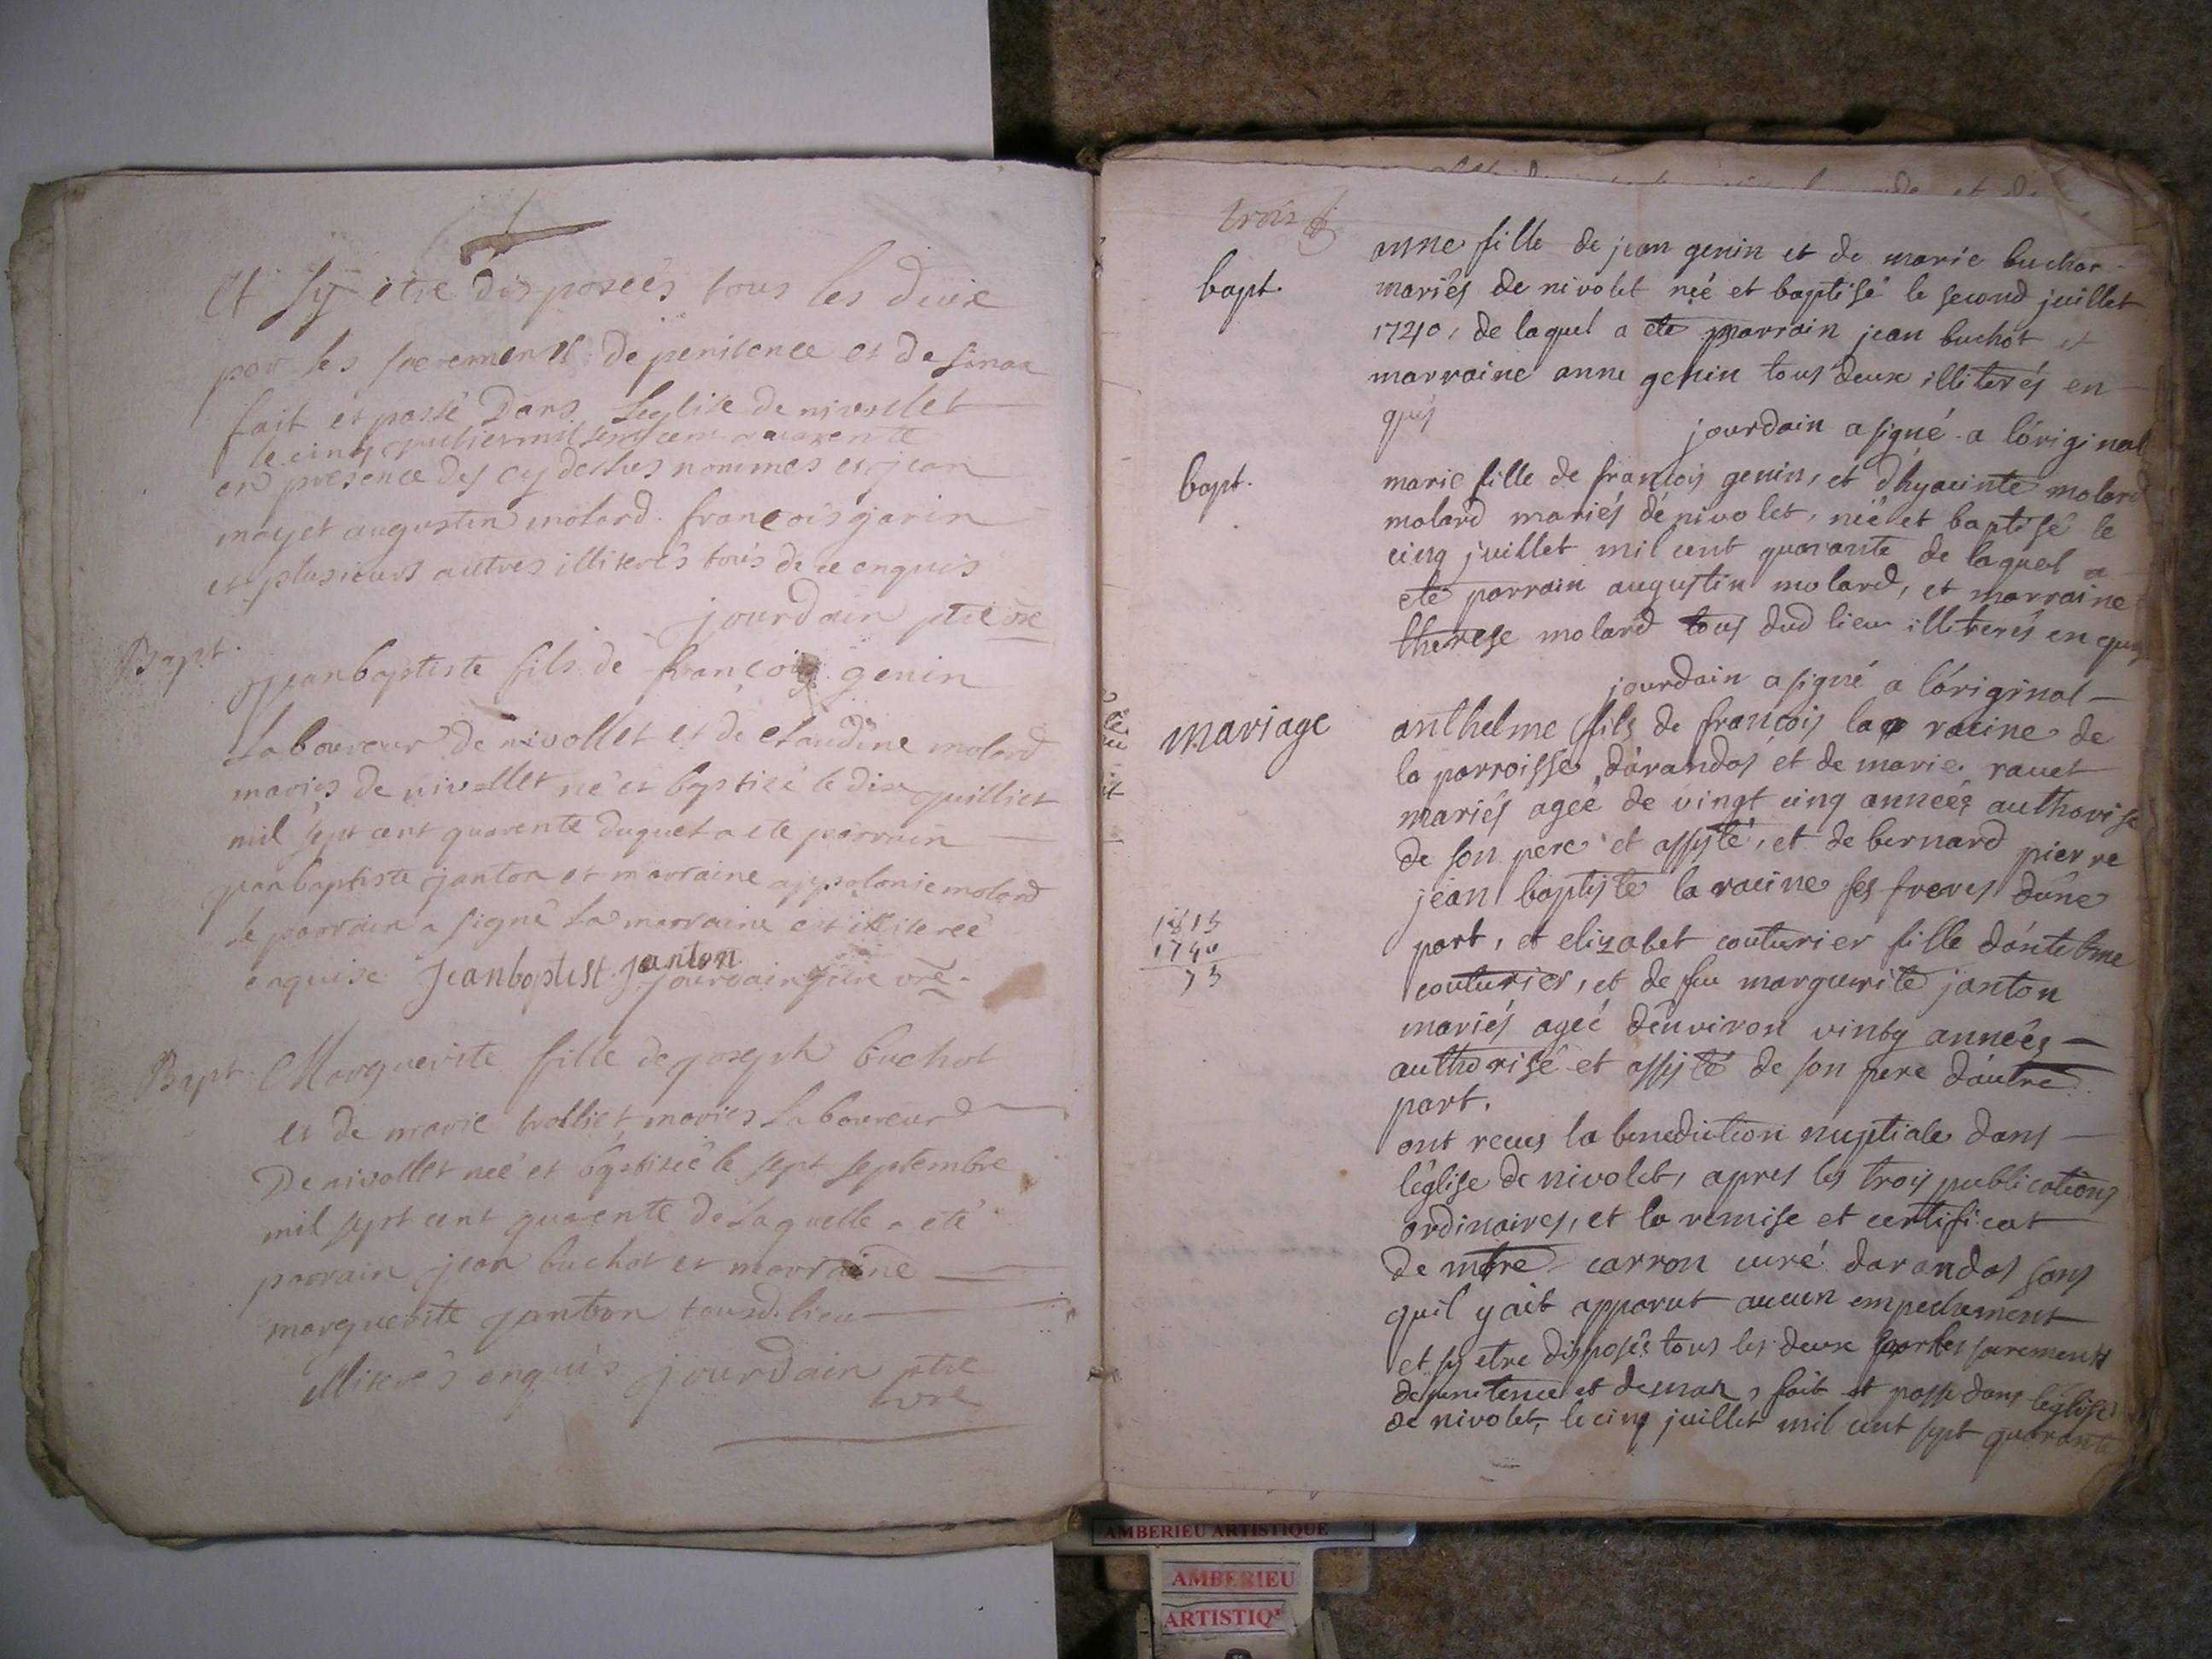 et sy etre disposeés tous les deux
par les sacrements de penitence et de
fait et passé dans Leglise de nivollet
le cinq juliet mil sept cent quarente
en presence des cy dessus nommes et jean
may et augustin molard françois garin
et plusieurs autres illiterés tous de ce enquis
jourdain ptre vre
Bapt.
jean baptiste fils de françois genin
Laboureur de nivollet et de claudine molard
mariés de nivollet né et baptisé le dix juilliet
mil sept cent quarente duquel a ete parrain
jean baptiste janton et marraine appolonie molard
le parrain a signé La marraine est illiterée
enquise Jean baptist janton
jourdain ptre vre
Bapt.
Marguerite fille de joseph buchot
et de marie trolliet mariés Laboureurs
De nivollet née et baptiseé le sept septembre
mil sept cent quarente de Laquelle a eté
parrain jean buchot et marraine
marguerite janton tous d. lieu
illiterés enquis jourdain ptre
vre
trois
bapt.
anne fille de jean genin et de marie buchot
mariés de nivolet née et baptisé le second juillet
1740, de laquel a ete parrain jean buchot et
marraine anne genin tous deux illiterés en
quis
jourdain a signé a l'original
bapt.
marie fille de françois genin, et d'hyacinte molard
molard mariés de nivolet, neé et baptisé le
cinq juillet mil cent quarante de laquel a
ete parrain augustin molard, et marraine
therese molard tous dud lieu illiterés en quis
jourdain a signé a l'original
mariage
anthelme fils de françois la racine de
la parroisse d'arandas et de marie ravet
mariés ageé de vingt cinq anneés authorise
de son pere et assysté, et de bernard pierre
jean baptiste la racine ses freres d'une
1815
1740
75
part, et elizabet couturier fille d'antelme
couturier, et de feu marguerite janton
mariés ageé d'environ vintg anneés
authorisé et assysté de son pere d'autre
part.
ont recus la benediction nuptiale dans
l'église de nivolet, apres les trois publications
ordinaires, et la remise et certificat
de mtre carron curé darandas sans
quil y ait apparut aucun empechement
et sy etre disposés tous les deux par les sacrements
de penitence et de , fait et passe dans leglise
de nivolet, le cinq juillet mil cent sept quarante
AMBERIEU ARTISTIQUE
AMBERIEU
ARTISTIQ